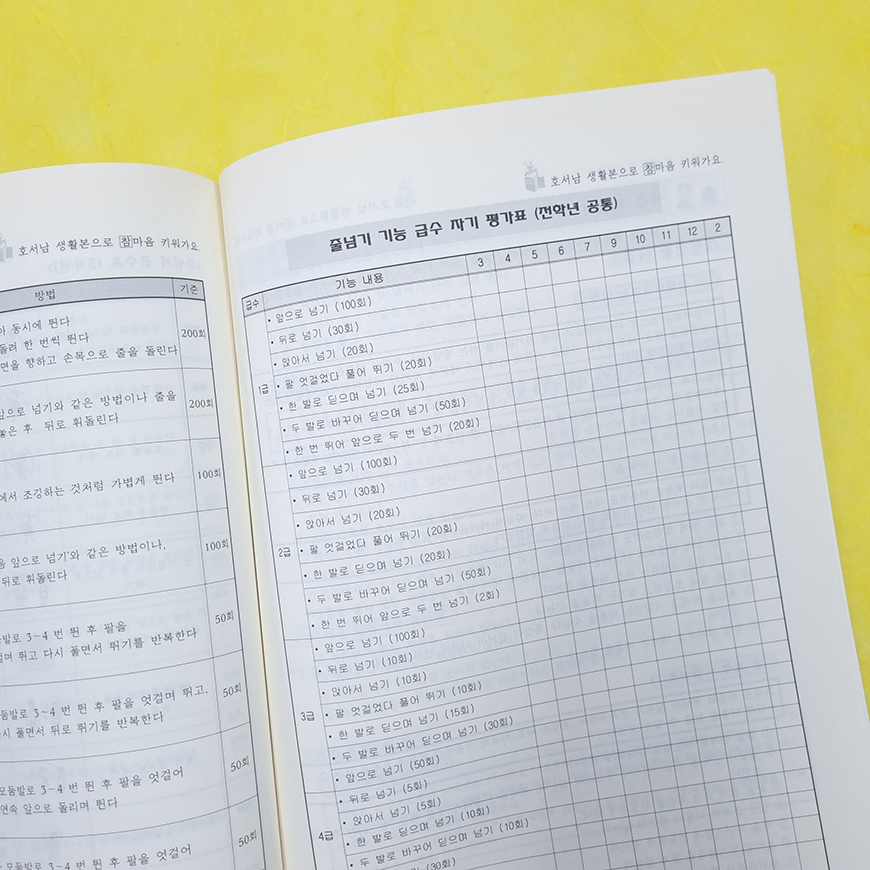 호서남 생활본으로 참마음 키워가요.
방법 기준
동시에 뛴다
돌려 한 번씩 뛴다
면을 향하고 손목으로 줄을 돌린다
200회
앞으로 넘기와 같은 방법이나 줄을
놓은 후 뒤로 휘돌린다
200회
에서 조깅하는 것처럼 가볍게 뛴다
100회
앞으로 넘기'와 같은 방법이나,
뒤로 휘돌린다
100회
3~4 번 뛴 후 팔을
뛰고 다시 풀면서 뛰기를 반복한다
50회
3~4 번 뛴 후 팔을 엇걸며 뛰고,
풀면서 뒤로 뛰기를 반복한다
50회
모둠발로 3~4 번 뛴 후 팔을 엇걸어
연속 앞으로 돌리며 뛴다
50회
모둠발로 3~4 번 뛴 후 팔을 엇걸어
50회
호서남 생활본으로 참마음 키워가요.
줄넘기 기능 급수 자기 평가표 (전학년 공통)
급수 기능 내용 3 4 5 6 7 9 10 11 12 2
1급
• 앞으로 넘기 (100회)
• 뒤로 넘기 (30회)
• 앉아서 넘기 (20회)
• 팔 엇걸었다 풀어 뛰기 (20회)
• 한 발로 딛으며 넘기 (25회)
• 두 발로 바꾸어 딛으며 넘기 (50회)
• 한 번 뛰어 앞으로 두 번 넘기 (20회)
2급
• 앞으로 넘기 (100회)
• 뒤로 넘기 (30회)
• 앉아서 넘기 (20회)
• 팔 엇걸었다 풀어 뛰기 (20회)
• 한 발로 딛으며 넘기 (20회)
• 두 발로 바꾸어 딛으며 넘기 (50회)
• 한 번 뛰어 앞으로 두 번 넘기 (2회)
3급
• 앞으로 넘기 (100회)
• 뒤로 넘기 (10회)
• 앉아서 넘기 (10회)
• 팔 엇걸었다 풀어 뛰기 (10회)
• 한 발로 딛으며 넘기 (15회)
• 두 발로 바꾸어 딛으며 넘기 (30회)
4급
• 앞으로 넘기 (50회)
• 뒤로 넘기 (5회)
• 앉아서 넘기 (5회)
• 한 발로 딛으며 넘기 (10회)
• 두 발로 바꾸어 딛으며 넘기 (10회)
넘기 (30회)